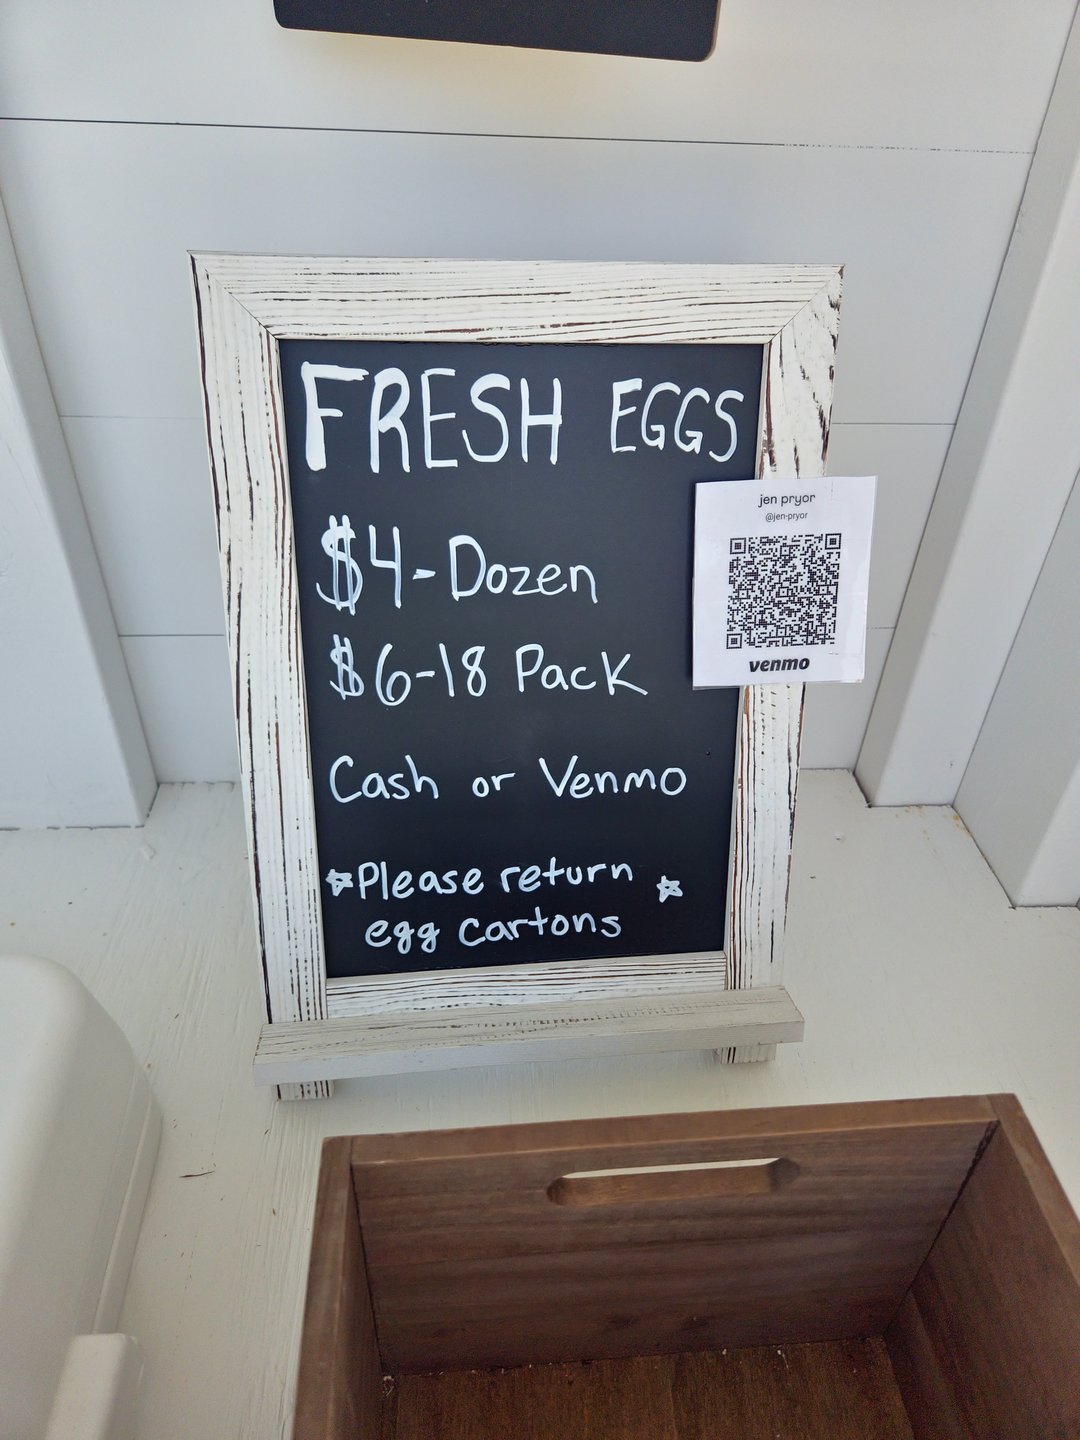 FRESH EGGS
$4-Dozen
$6-18 Pack
Cash or Venmo
Please return
egg cartons
jen pryor
@jen-pryor
venmo